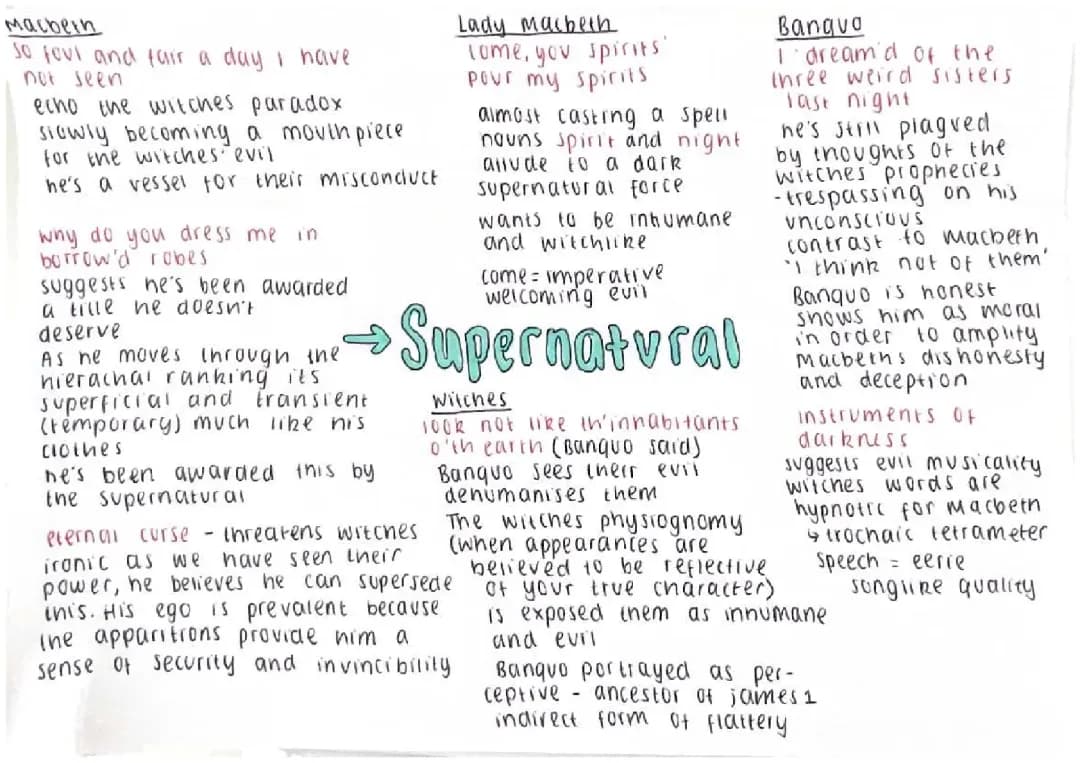 Macbeth
so foul and fair a day i have
not seen
echo the witches paradox
slowly becoming a mouthpiece
for the witches' evil
he's a vessel for their misconduct
why do you dress me in
borrow'd robes
suggests he's been awarded
a title he doesn't
deserve
As he moves through the
hierachal ranking its
superficial and transient
(temporary) much like his
clothes
he's been awarded this by
the supernatural
eternal curse - threatens witches
ironic as we have seen their
power, he believes he can supersede
this. His ego is prevalent because
the apparitions provide him a
sense of security and invincibility
Lady Macbeth
come, you spirits'
pour my spirits
almost casting a spell
nouns spirit and night
allude to a dark
supernatural force
wants to be inhumane
and witchlike
come = imperative
welcoming evil
→ Supernatural
Witches
look not like th'inhabitants
o'th earth (Banquo said)
Banquo sees their evil
dehumanises them
The witches physiognomy
(when appearances are
believed to be reflective
of your true character)
is exposed them as inhumane
and evil
Banquo portrayed as per-
ceptive - ancestor of james 1
indirect form of flattery
Banquo
I dream'd of the
three weird sisters
last night
he's still plagued
by thoughts of the
witches' prophecies
-trespassing on his
unconscious
contrast to macbeth,
'i think not of them'
Banquo is honest
shows him as moral
in order to amplify
Macbeths dishonesty
and deception
instruments of
darkness
suggests evil musicality
witches words are
hypnotic for Macbeth
↳ trochaic tetrameter
speech = eerie
songlike quality